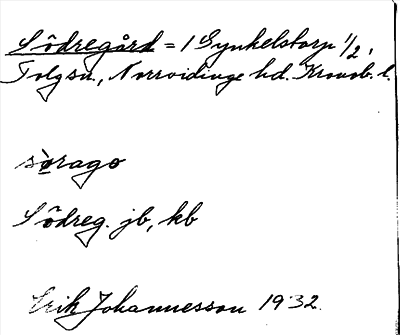 Södregård = 1 Gynkelstorp 1/2,
Tolgsn., Norrvidinge hd. Kronob. l.
sørago
Södreg. jb, kb
Erik Johannesson 1932.